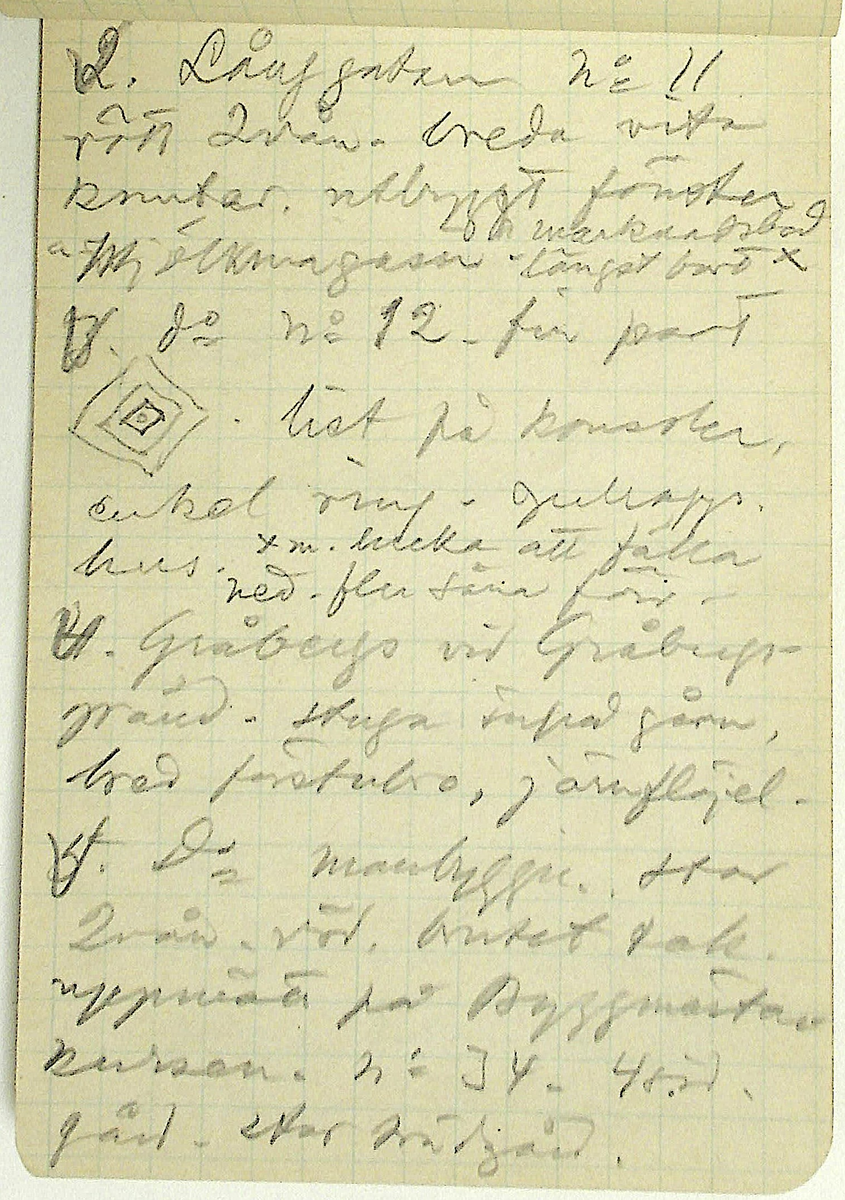 2. Långgatan No 11
rött 2vån. breda vita
knutar. utbyggt fönster
marknadsbod
Mjölkmagasin - längst bort x
3. do no 12 - fin port
. list på konsoler,
enkel ring -
hus. x m. lucka att fälla
ned. fler såna förr -
4. Gråbergs vid Gråbergs-
gränd - stuga inpå gårn,
bred förstubro, järnflöjel.
5. Do manbyggn. stor
2vån. röd, brutet tak.
uppmätt på Byggmästar
kursen. no 34. 4sid.
gård - stor trädgård.